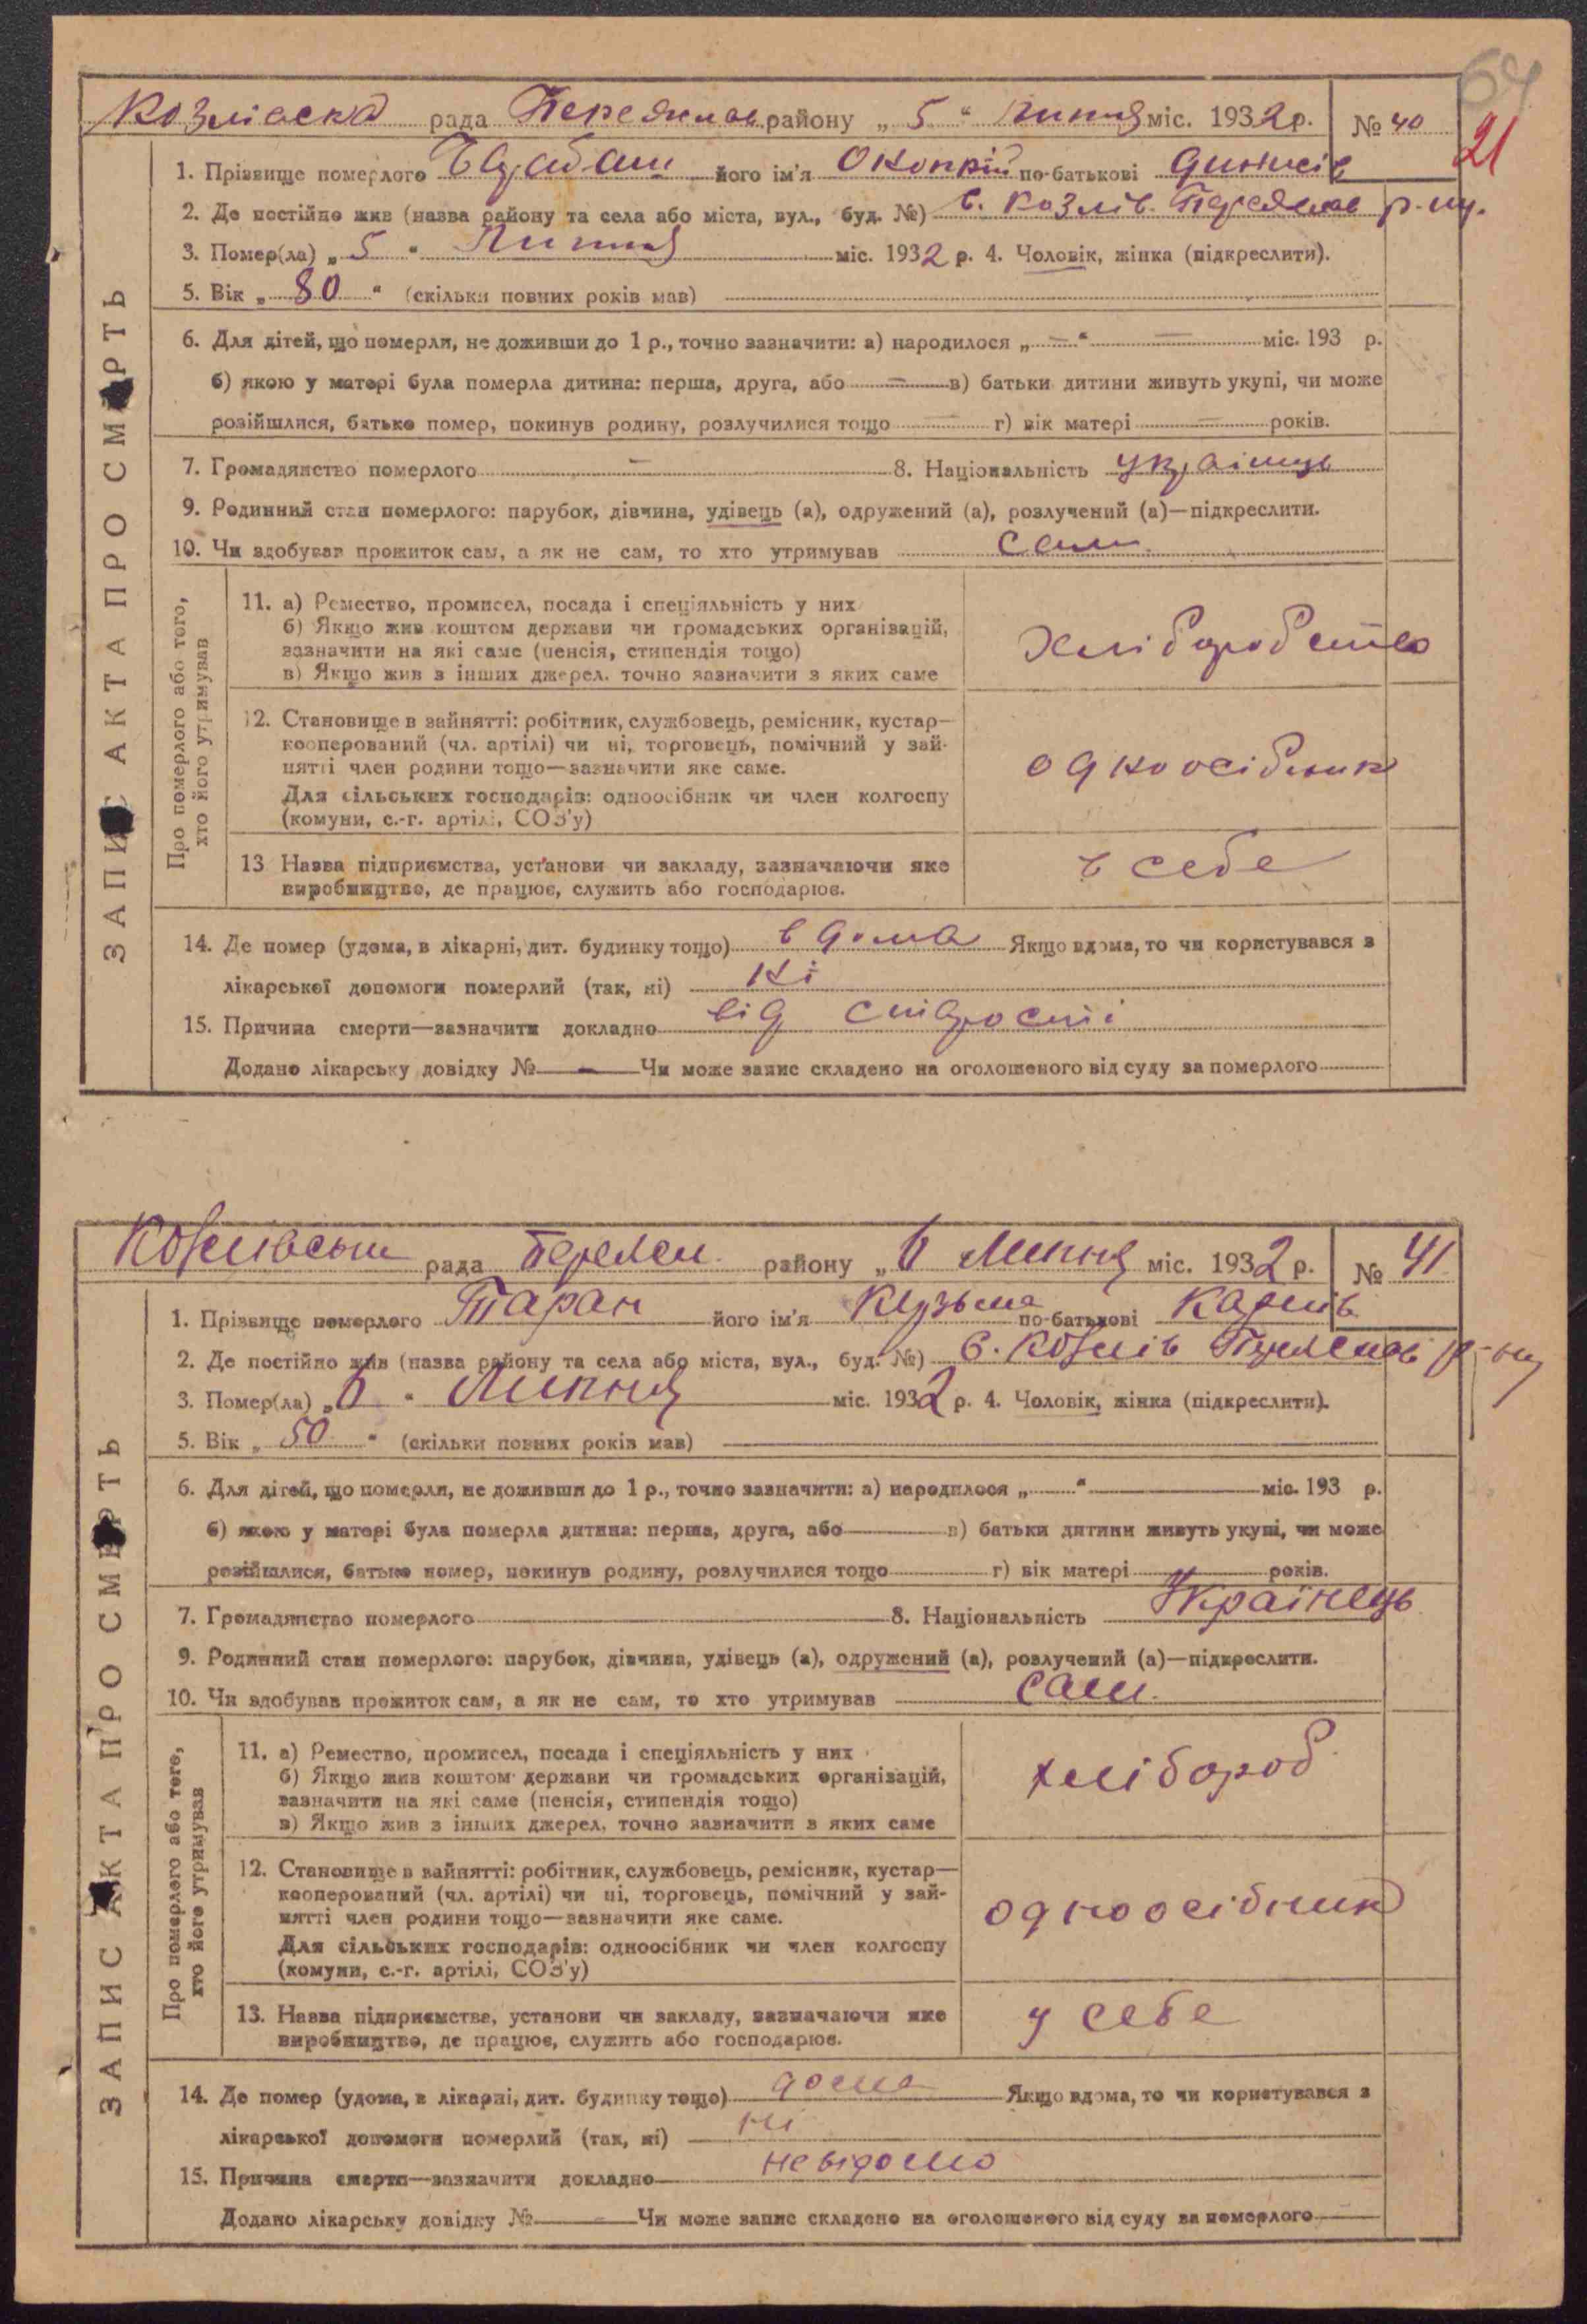 64
21
Козлівска рада Переяслав району „ 5 “ Липня міс. 1932 р. № 40
1. Прізвище померлого його ім'я по-батькові
2. Де постійно жив (назва району та села або міста, вул., буд. №) с. Козлів Переяслав р-ну.
3. Помер(ла) „ 5 “ Липня міс. 1932 р. 4. Чоловік, жінка (підкреслити).
5. Вік „ 80 “ (скільки повних років мав)
6. Для дітей, що померли, не доживши до 1 р., точно зазначити: а) народилося „ — “ — міс. 193 р.
б) якою у матері була померла дитина: перша, друга, або — в) батьки дитини живуть укупі, чи може
розійшлися, батько помер, покинув родину, розлучилися тощо — г) вік матері — років.
7. Громадянство померлого — 8. Національність українець
9. Родинний стан померлого: парубок, дівчина, удівець (а), одружений (а), розлучений (а)—підкреслити.
10. Чи здобував прожиток сам, а як не сам, то хто утримував сам.
ЗАПИС АКТА ПРО СМЕРТЬ
Про померлого або того, хто його утримував
11. а) Ремество, промисел, посада і спеціяльність у них
б) Якщо жив коштом держави чи громадських організацій,
зазначити на які саме (пенсія, стипендія тощо)
в) Якщо жив з інших джерел, точно зазначити з яких саме
Хліборобство
12. Становище в зайнятті: робітник, службовець, ремісник, кустар—
кооперований (чл. артілі) чи ні, торговець, помічний у зай-
нятті член родини тощо—зазначити яке саме.
Для сільських господарів: одноосібник чи член колгоспу
(комуни, с.-г. артілі, СОЗ'у)
одноосібник
13 Назва підприємства, установи чи закладу, зазначаючи яке
виробництво, де працює, служить або господарює.
в себе
14. Де помер (удома, в лікарні, дит. будинку тощо) в дома Якщо вдома, то чи користувався з
лікарської допомоги померлий (так, ні) Ні
15. Причина смерти—зазначити докладно від старості
Додано лікарську довідку № — Чи може запис складено на оголошеного від суду за померлого
Козлівська рада Переясл. району „ 6 Липня міс. 1932 р. № 41
1. Прізвище померлого Таран його ім'я Кузьма по-батькові
2. Де постійно жив (назва району та села або міста, вул., буд. №) с. Козлів Переяслав р-ну
3. Помер(ла) „ 6 “ Липня міс. 1932 р. 4. Чоловік, жінка (підкреслити).
5. Вік „ 50 “ (скільки повних років мав)
6. Для дітей, що померли, не доживши до 1 р., точно зазначити: а) народилося „ “ міс. 193 р.
б) якою у матері була померла дитина: перша, друга, або в) батьки дитини живуть укупі, чи може
розійшлися, батько помер, покинув родину, розлучилися тощо г) вік матері років.
7. Громадянство померлого 8. Національність Українець
9. Родинний стан померлого: парубок, дівчина, удівець (а), одружений (а), розлучений (а)—підкреслити.
10. Чи здобував прожиток сам, а як не сам, то хто утримував сам.
ЗАПИС АКТА ПРО СМЕРТЬ
Про померлого або того, хто його утримував
11. а) Ремество, промисел, посада і спеціяльність у них
б) Якщо жив коштом держави чи громадських організацій,
зазначити на які саме (пенсія, стипендія тощо)
в) Якщо жив з інших джерел, точно зазначити з яких саме
хлібороб
12. Становище в зайнятті: робітник, службовець, ремісник, кустар—
кооперований (чл. артілі) чи ні, торговець, помічний у зай-
нятті член родини тощо—зазначити яке саме.
Для сільських господарів: одноосібник чи член колгоспу
(комуни, с.-г. артілі, СОЗ'у)
одноосібник
13. Назва підприємства, установи чи закладу, зазначаючи яке
виробництво, де працює, служить або господарює.
у себе
14. Де помер (удома, в лікарні, дит. будинку тощо) дома Якщо вдома, то чи користувався з
лікарської допомоги померлий (так, ні) ні
15. Причина смерти—зазначити докладно невідомо
Додано лікарську довідку № — Чи може запис складено на оголошеного від суду за померлого